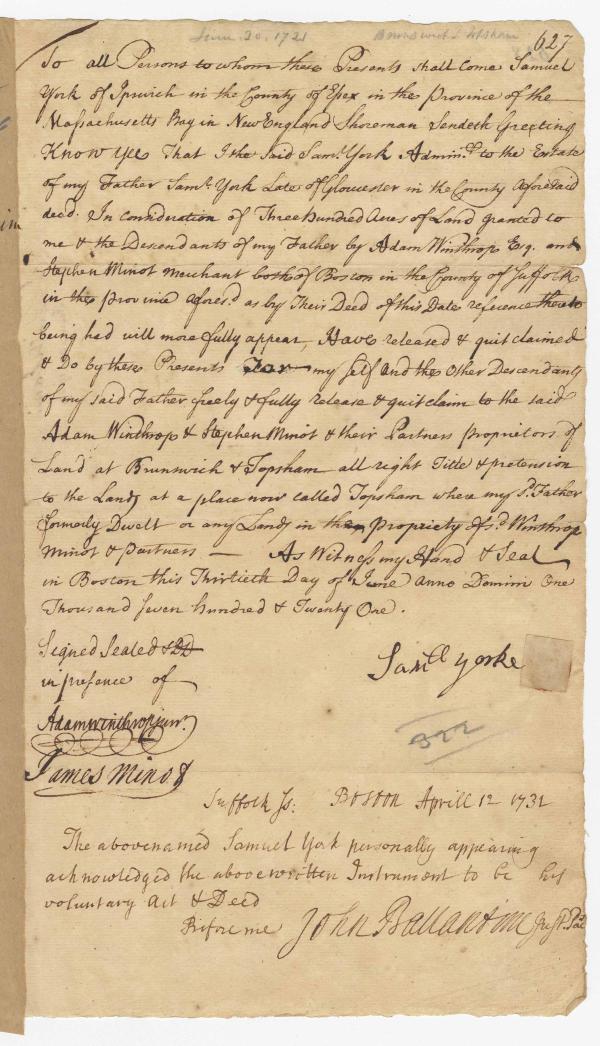 June 30. 1721 Brunswick & Topsham 627
To all Persons to whom these Presents shall come Samuel
York of Ipswich in the County of Essex in the Province of the
Massachusetts Bay in New England Shoreman Sendeth Greeting
Know Yee That I the Said Samll. York Adminr. to the Estate
of my Father Samll. York Late of Gloucester in the County Aforesaid
decd. In consideration of Three hundred Acres of Land granted to
me & the Descendants of my Father by Adam Winthrop Esq. and
Stephen Minot merchant both of Boston in the County of Suffolk
in the Province aforesd. as by Their Deed of this Date reference thereto
being had will more fully appear, Have released & quit claimed
& Do by these Presents For my self and the Other Descendants
of my said Father freely & fully release & quit claim to the said
Adam Winthrop & Stephen Minot & their Partners proprietors of
Land at Brunswick & Topsham all right Title & pretension
to the Lands at a place now called Topsham where my sd. Father
formerly Dwelt or any Lands in the propriety of sd. Winthrop
Minot & partners — As Witness my Hand & Seal
in Boston this Thirtieth Day of June anno Domini One
Thousand Seven hundred & Twenty One.
Signed Sealed & DD
in presence of
Samll Yorke
Adam Winthrop junr.
James Minot
322
Suffolk Ss: Boston Aprill 12 1731
The abovenamed Samuel York personally appearing
acknowledged the above written Instrument to be his
voluntary Act & Deed
Before me John Ballantine Just. Pac